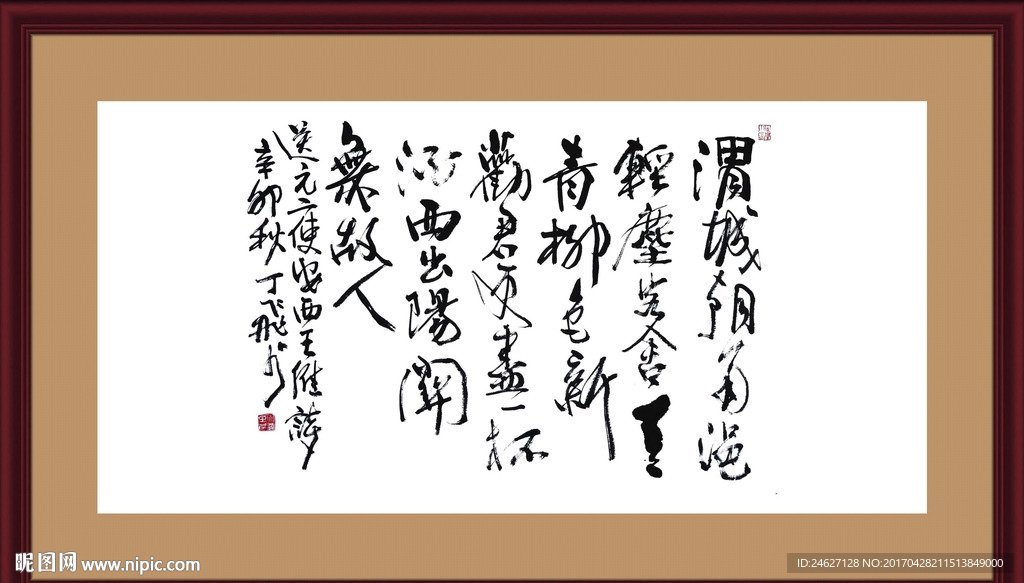 渭城朝雨浥
輕塵客舍青
青柳色新
勸君更盡一杯
酒西出陽關
無故人
送元二使安西王維詩
辛卯秋丁飛书
昵图网 www.nipic.com
ID:24627128 NO:20170428211513849000